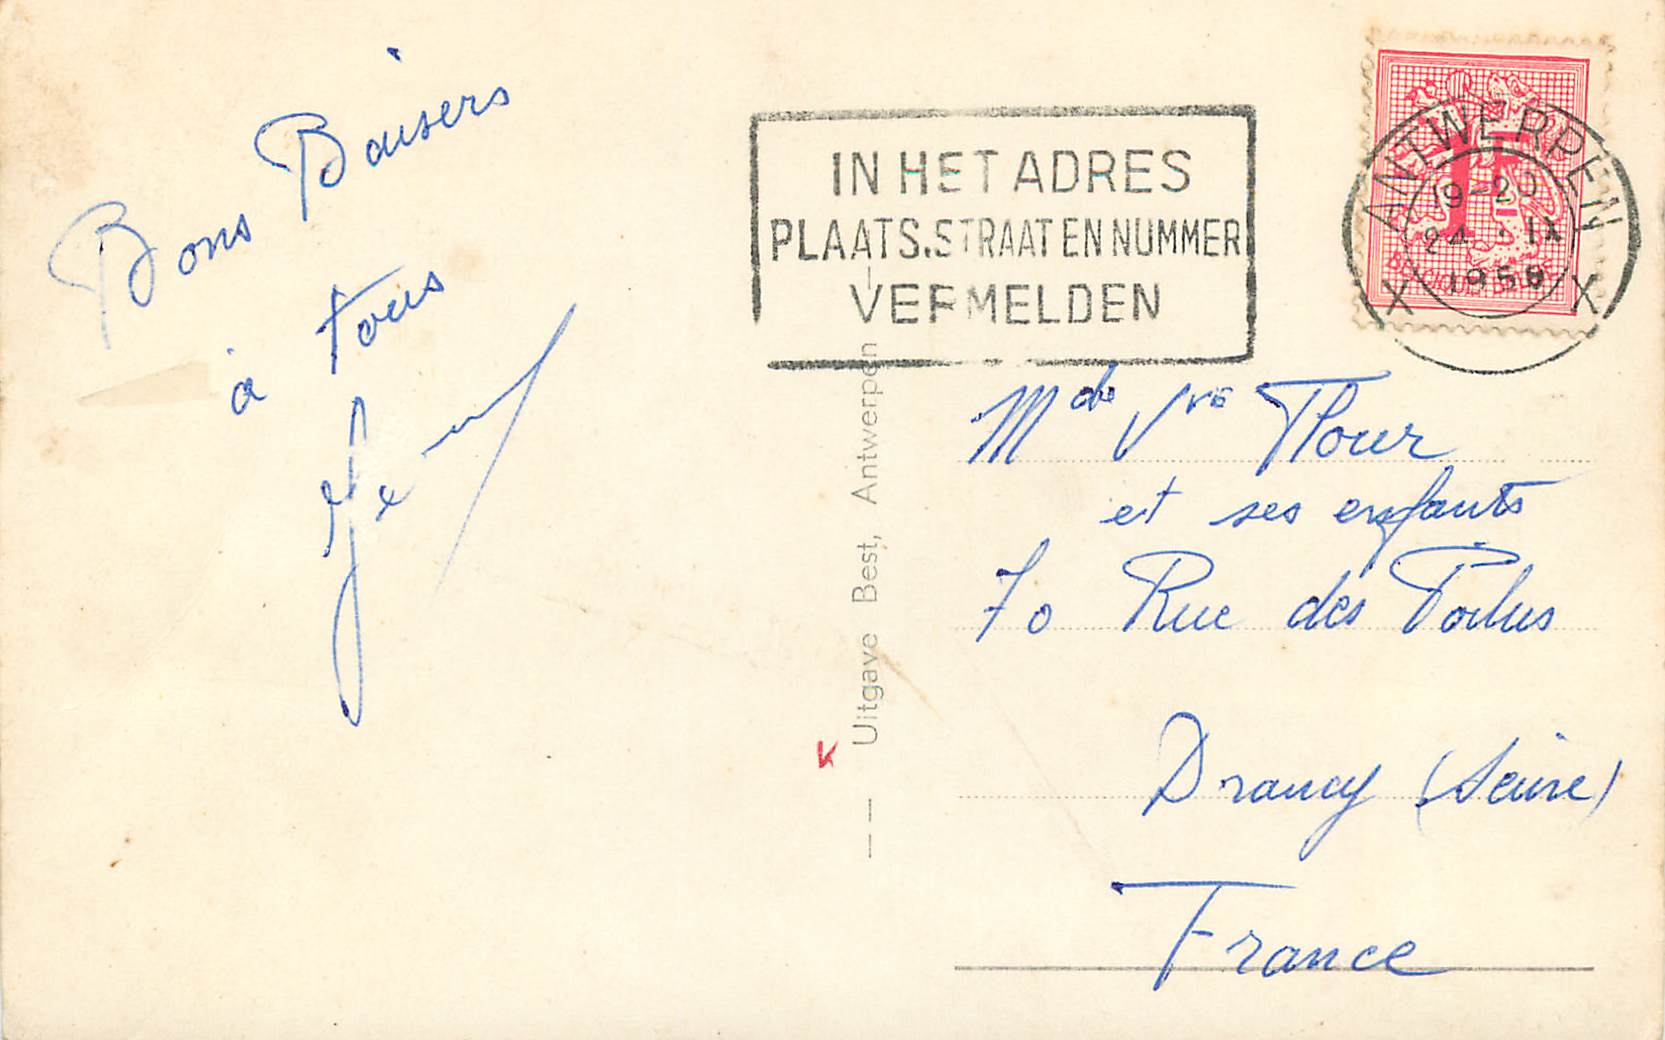 Bons Baisers
à tous
IN HET ADRES
PLAATS.STRAAT EN NUMMER
VERMELDEN
ANTWERPEN
19-20
24 . IX
1958
X X
1F
BELGIQUE-BELGIE
Uitgave Best, Antwerpen
Mde Vve Flour
et ses enfants
70 Rue des Poilus
Drancy (Seine)
France